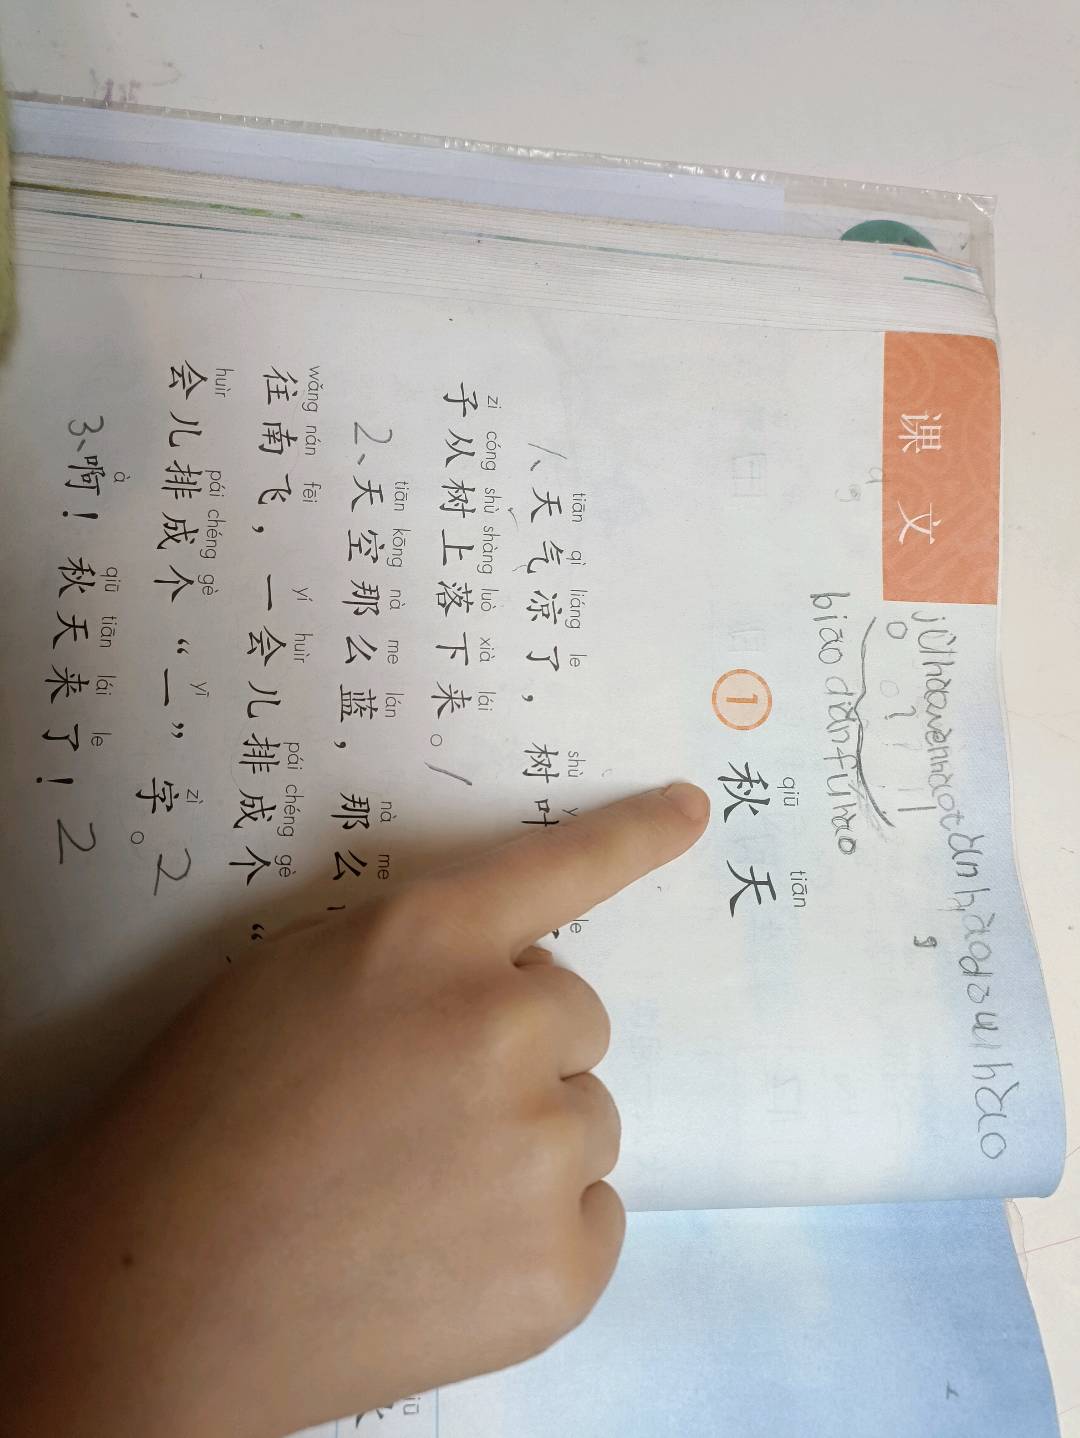 课文
jùhàowènhàotànhàodòuhào
。 ？ ！ ，
biāo diǎn fú hào
qiū tiān
① 秋天
tiān qì liáng le shù le
1、天气凉了，树叶
zi cóng shù shàng luò xià lái
子从树上落下来。/
tiān kōng nà me lán nà me
2、天空那么蓝，那么
wǎng nán fēi yí huìr pái chéng gè
往南飞，一会儿排成个“
huìr pái chéng gè yī zì
会儿排成个“一”字。2
à qiū tiān lái le
3、啊！秋天来了！2